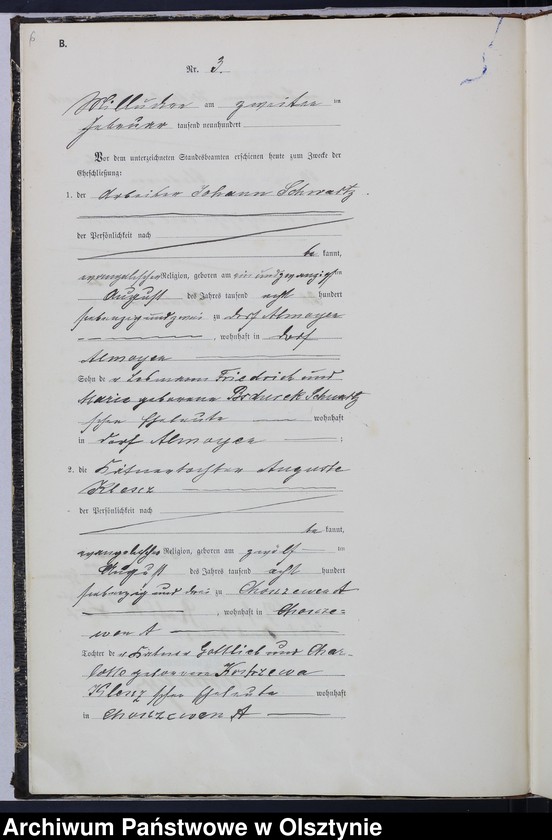 6
B.
Nr. 3.
Willudden am zweiten ten
Februar tausend neunhundert
Vor dem unterzeichneten Standesbeamten erschienen heute zum Zwecke der
Eheschließung:
1. der Arbeiter Johann Schwartz
der Persönlichkeit nach
be kannt,
evangelischer Religion, geboren am ein und zwanzigsten
August des Jahres tausend acht hundert
siebenzig und zwei zu Dorf Almoyen
, wohnhaft in Dorf
Almoyen
Sohn der Losmann Friedrich und
Marie geborene Schwartz
schen Eheleute wohnhaft
in Dorf Almoyen ;
2. die Kätnertochter Auguste
Klenz
der Persönlichkeit nach
be kannt,
evangelischer Religion, geboren am zwölf ten
August des Jahres tausend acht hundert
siebenzig und drei zu Choszewen A
, wohnhaft in Chosze-
wen A
Tochter der Kätner Gottlieb und Char-
lotte geborene Kostrzewa
Klenz schen Eheleute wohnhaft
in Choszewen A
Archiwum Państwowe w Olsztynie